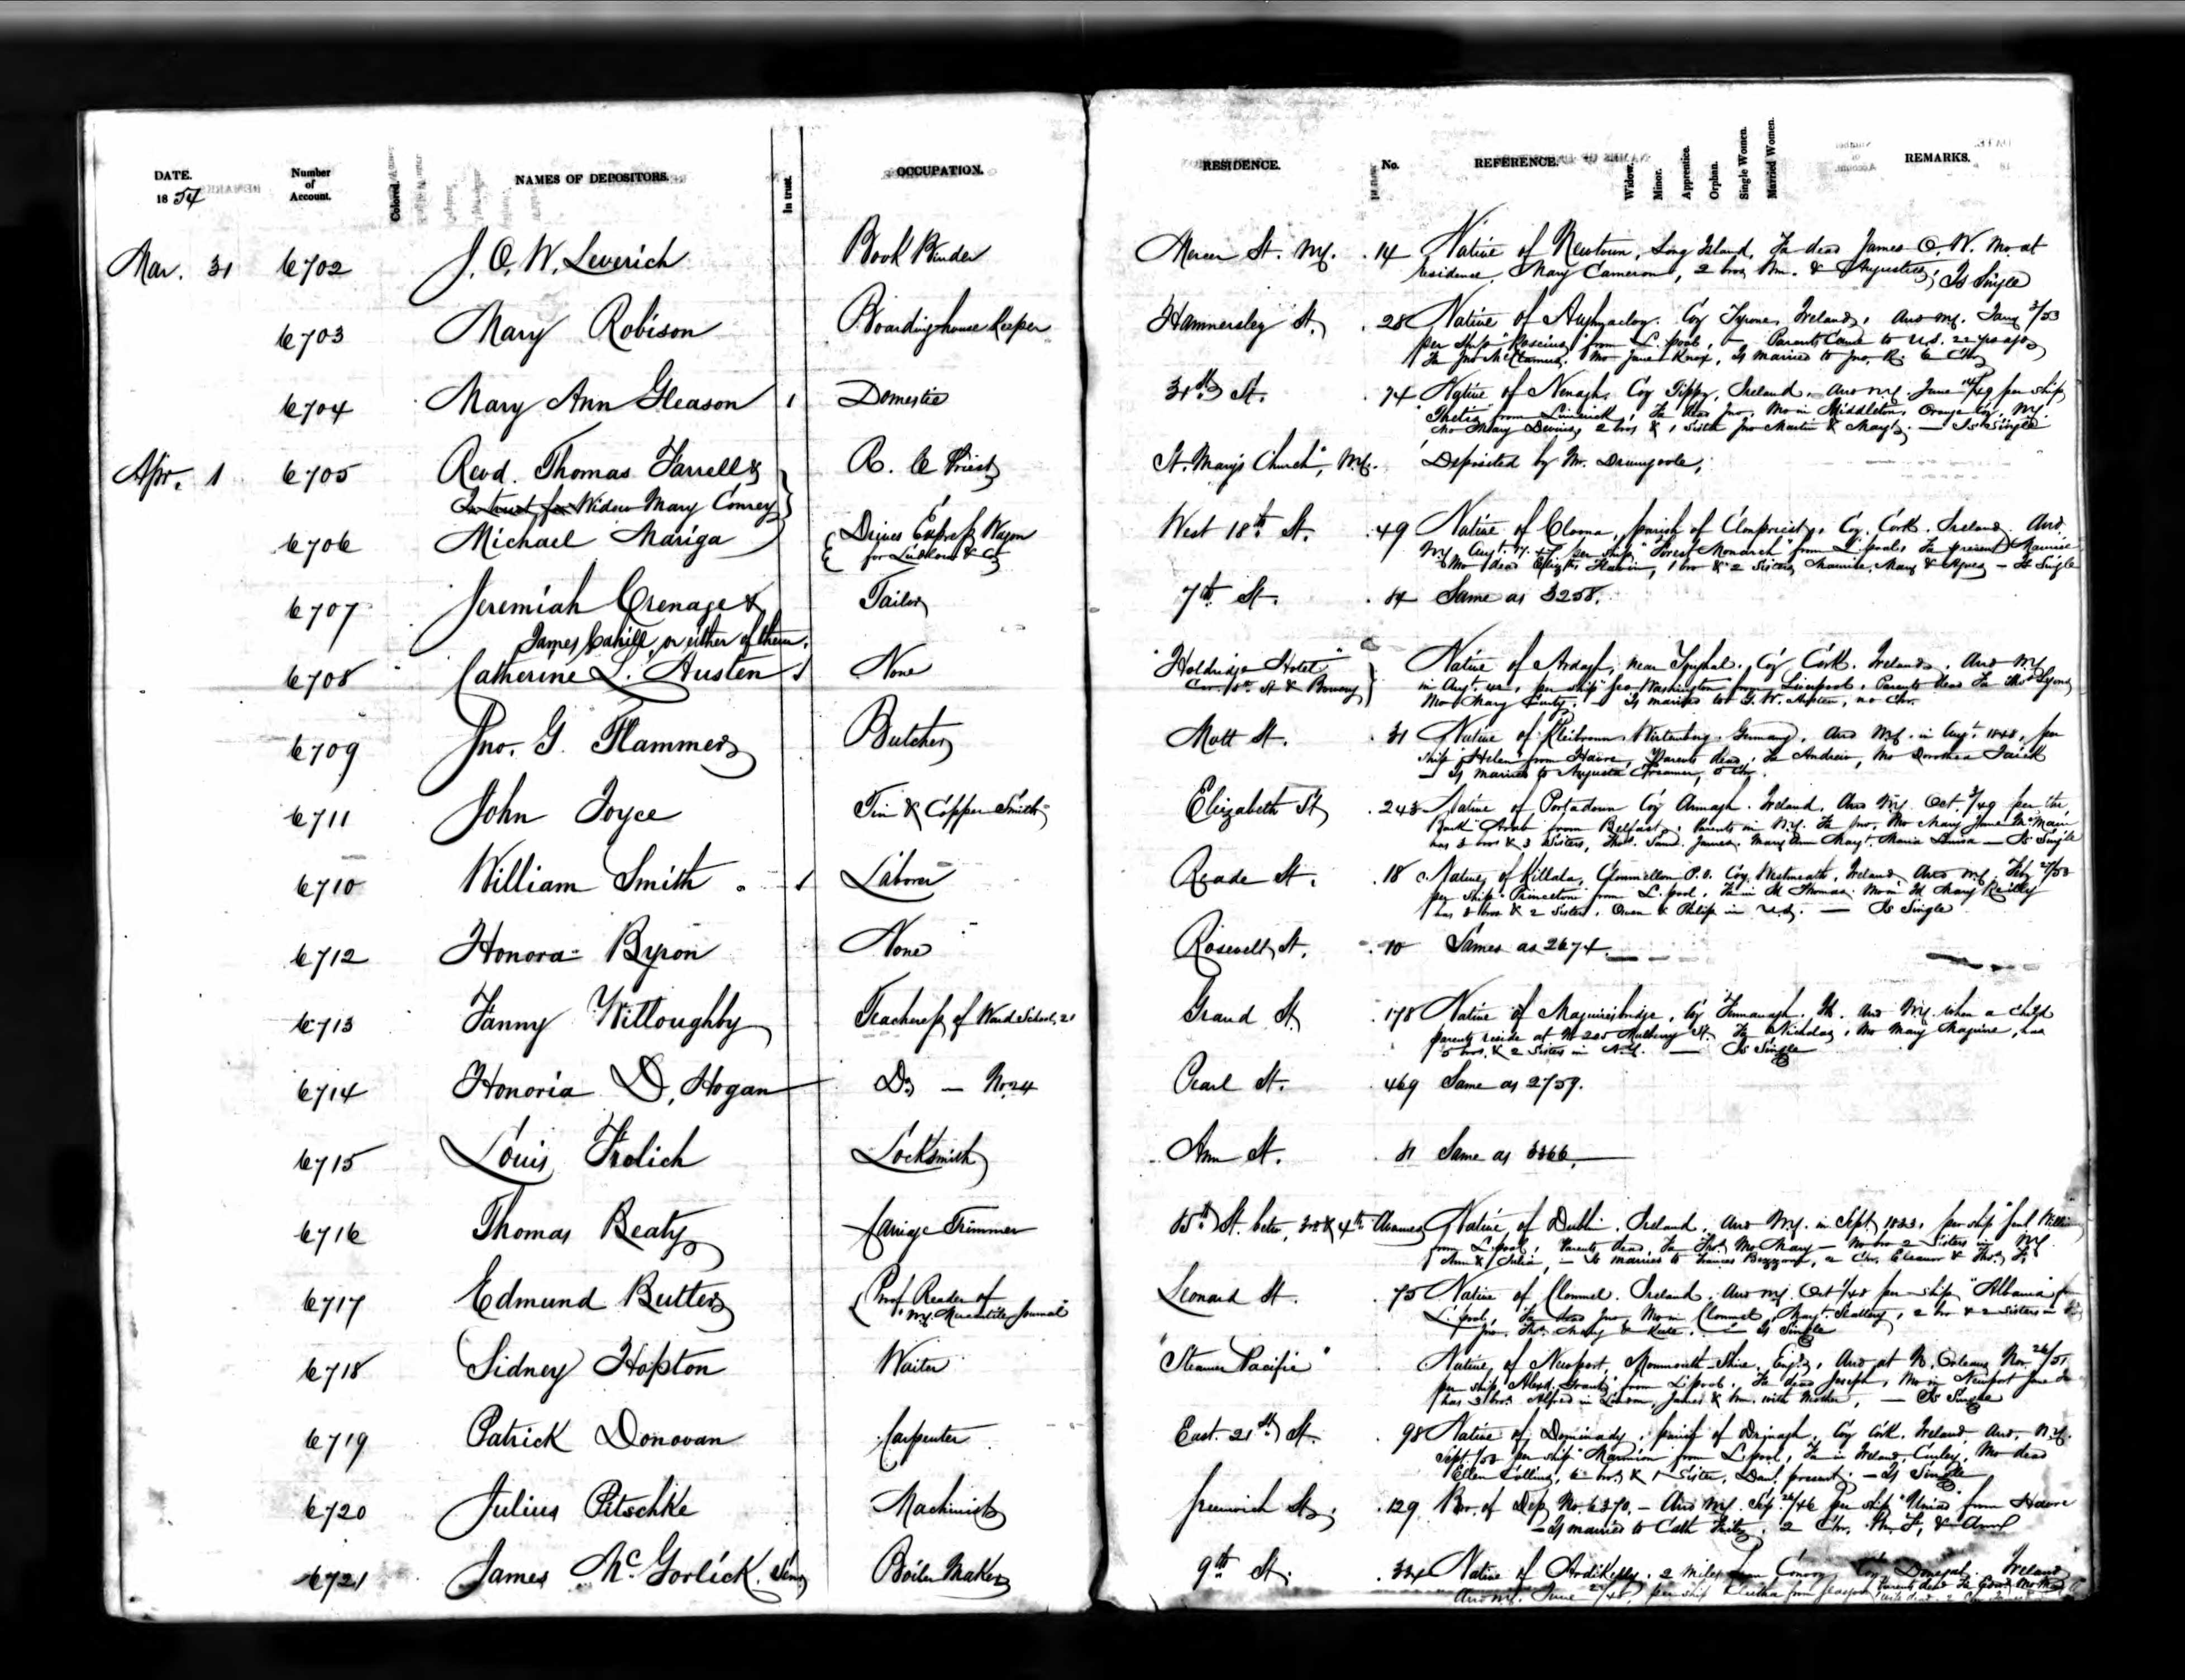 DATE. Number of Account. Colored. NAMES OF DEPOSITORS. In trust. OCCUPATION. RESIDENCE. No. REFERENCE. Widow. Minor. Apprentice. Orphan. Single Women. Married Women. REMARKS.
1854
Mar. 31 6702 J. O. W. Leverich Book Binder Mercer St. N.Y. 14 Native of Newtown, Long Island, Fa dead James O. W. Mo at
residence, Mary Cameron, 2 bros Wm. & Augustus, Is Single
6703 Mary Robison Boardinghouse Keeper Hammersley St. 28 Native of Aughnacloy. Coy Tyrone, Ireland. Arrd N.Y. Jany 2/53
per Ship "Roscius" from L.pool, Parents Came to U.S. 22 yrs ago
Fa Jno Mo Jane Knox, Is married to Jno. R. 6 Chn
6704 Mary Ann Gleason 1 Domestic 31st St. 74 Native of Nenagh, Coy Tippy, Ireland. Arrd N.Y. June 14/49 per ship
"Thetis" from Limerick, Fa dead Jno, Mo in Middleton, Orange Coy. N.Y.
Mo Mary Devine, 2 bros & 1 Sister Jno Martin & Margt. — Is Single
Apr. 1 6705 Revd. Thomas Farrell & R. C. Priest St. Mary's Church, N.Y. Deposited by Mr. Drumgoole,
In trust for Widow Mary Conrey
6706 Michael Mariga Drives Express Wagon West 18th St. 49 Native of Cloona, parish of Clonpriest, Coy. Cork. Ireland. Arrd
for Ludlow & Co N.Y. Augt. 47 per ship "Forest Monarch" from L.pool, Fa present Maurice
Mo dead Elizth Flavin, 1 bro & 2 Sisters, Maurice, Mary & Agnes — Is Single
6707 Jeremiah Crenage & Tailor 7th St. 14 Same as 3258.
James Cahill, or either of them.
6708 Catherine L. Austen 1 None "Holdridge Hotel" Native of Ardagh, near Coy Cork. Ireland. Arrd N.Y.
Cor. St & Bowery in Augt. 42, per ship "Geo. Washington" from Liverpool, Parents dead Fa Thos Lyons
Mo Mary Is married to G. W. Austen, no Chn.
6709 Jno. G. Flammer Butcher Mott St. 31 Native of Wirtenberg. Germany. Arrd N.Y. in Augt. 1848, per
ship "Helen" from Havre, Parents dead, Fa Andrew, Mo Dorothea
— Is married to Augusta 5 Chn.
6711 John Joyce Tin & Copper Smith Elizabeth St 243 Native of Portadown Coy Armagh. Ireland. Arrd N.Y. Oct. 3/49 per the
Bark "Arab" from Belfast, Parents in N.Y. Fa Jno, Mo Mary Jane
has 3 bros & 3 Sisters, Thos. Saml. James. Mary Ann Margt. Maria Louisa — Is Single
6710 William Smith. 1 Laborer Reade St. 18 Native of Killala, Clonmellon P.O. Coy. Westmeath, Ireland Arrd N.Y. Feby 27/53
per Ship "Princeton" from L.pool. Fa in Id Thomas. Mo in Id Mary Reilly
has 3 bros & 2 Sisters. Owen & Philip in U.S. — Is Single
6712 Honora Byron None Rosevelt St. 10 Same as 2674.
6713 Fanny Willoughby Teacheress of Ward School, 21 Grand St 178 Native of Maguiresbridge, Coy Fermanagh. Id. Arrd N.Y. when a child
parents reside at No 205 Mulberry St. Fa Nicholas, Mo Mary Maguire, has
5 bros. & 2 Sisters in N.Y. — Is Single
6714 Honoria D. Hogan Do — No. 24 Pearl St. 469 Same as 2759.
6715 Louis Frolich Locksmith Ann St. 81 Same as 3366.
6716 Thomas Beaty Carriage Trimmer 35th St. betw. 3rd & 4th Avenues Native of Dublin. Ireland. Arrd N.Y. in Sept. 1833. per ship
from L.pool, Parents dead, Fa Thos. Mo Mary — No bro 2 Sisters in N.Y.
Ann & Julia, — Is married to Frances 2 Chn. Eleanor & Thos. F.
6717 Edmund Butler Prof Reader of Leonard St. 75 Native of Clonmel. Ireland. Arrd N.Y. Oct 1/48 per ship "Albania" from
N.Y. Mercantile Journal L.pool, Fa dead Jno Mo in Clonmel, Margt. 2 bro & 2 Sisters in
Jno. Thos. Mary & Kate. — Is Single
6718 Sidney Hopton Waiter "Steamer Pacific" Native of Newport, Monmouth-Shire, Engd. Arrd at N. Orleans Nov. 26/51
per ship from L.pool. Fa dead Joseph, Mo in Newport Jane
has 3 bros. Alfred in London, James & Wm. with Mother, — Is Single
6719 Patrick Donovan Carpenter East 21st St. 98 Native of parish of Drinagh, Coy Cork. Ireland. Arrd. N.Y.
Sept. per ship "Marmion" from L.pool, Fa in Ireland, Mo dead
Ellen Collins, 6 bros & 1 Sister, Danl. present. — Is Single
6720 Julius Pitschke Machinist Greenwich St. 129 Bro. of Dep No. 6370. — Arrd N.Y. Sep. 26/46 per ship from Havre
— Is married to Cath 2 Chn. Wm. F. & Ann
6721 James McGorlick. Senr Boiler Maker 9th St. 334 Native of Ardikelly. 2 miles from Convoy Coy Donegal. Ireland
Arrd N.Y. June per ship from Glasgow Parents dead